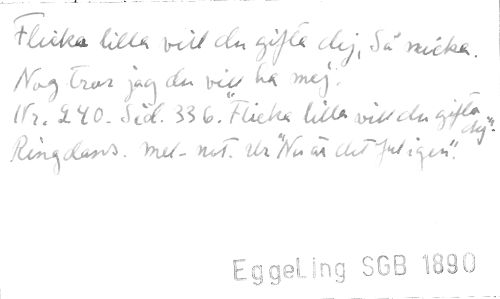 Flicka lilla vill du gifta dej, Så nicka.
Nog tror jag du vill ha mej.
Nr. 240. Sid. 336. "Flicka lilla vill du gifta dej".
Ringdans. mel-not. Ur "Nu är det jul igen".
EggeLing SGB 1890